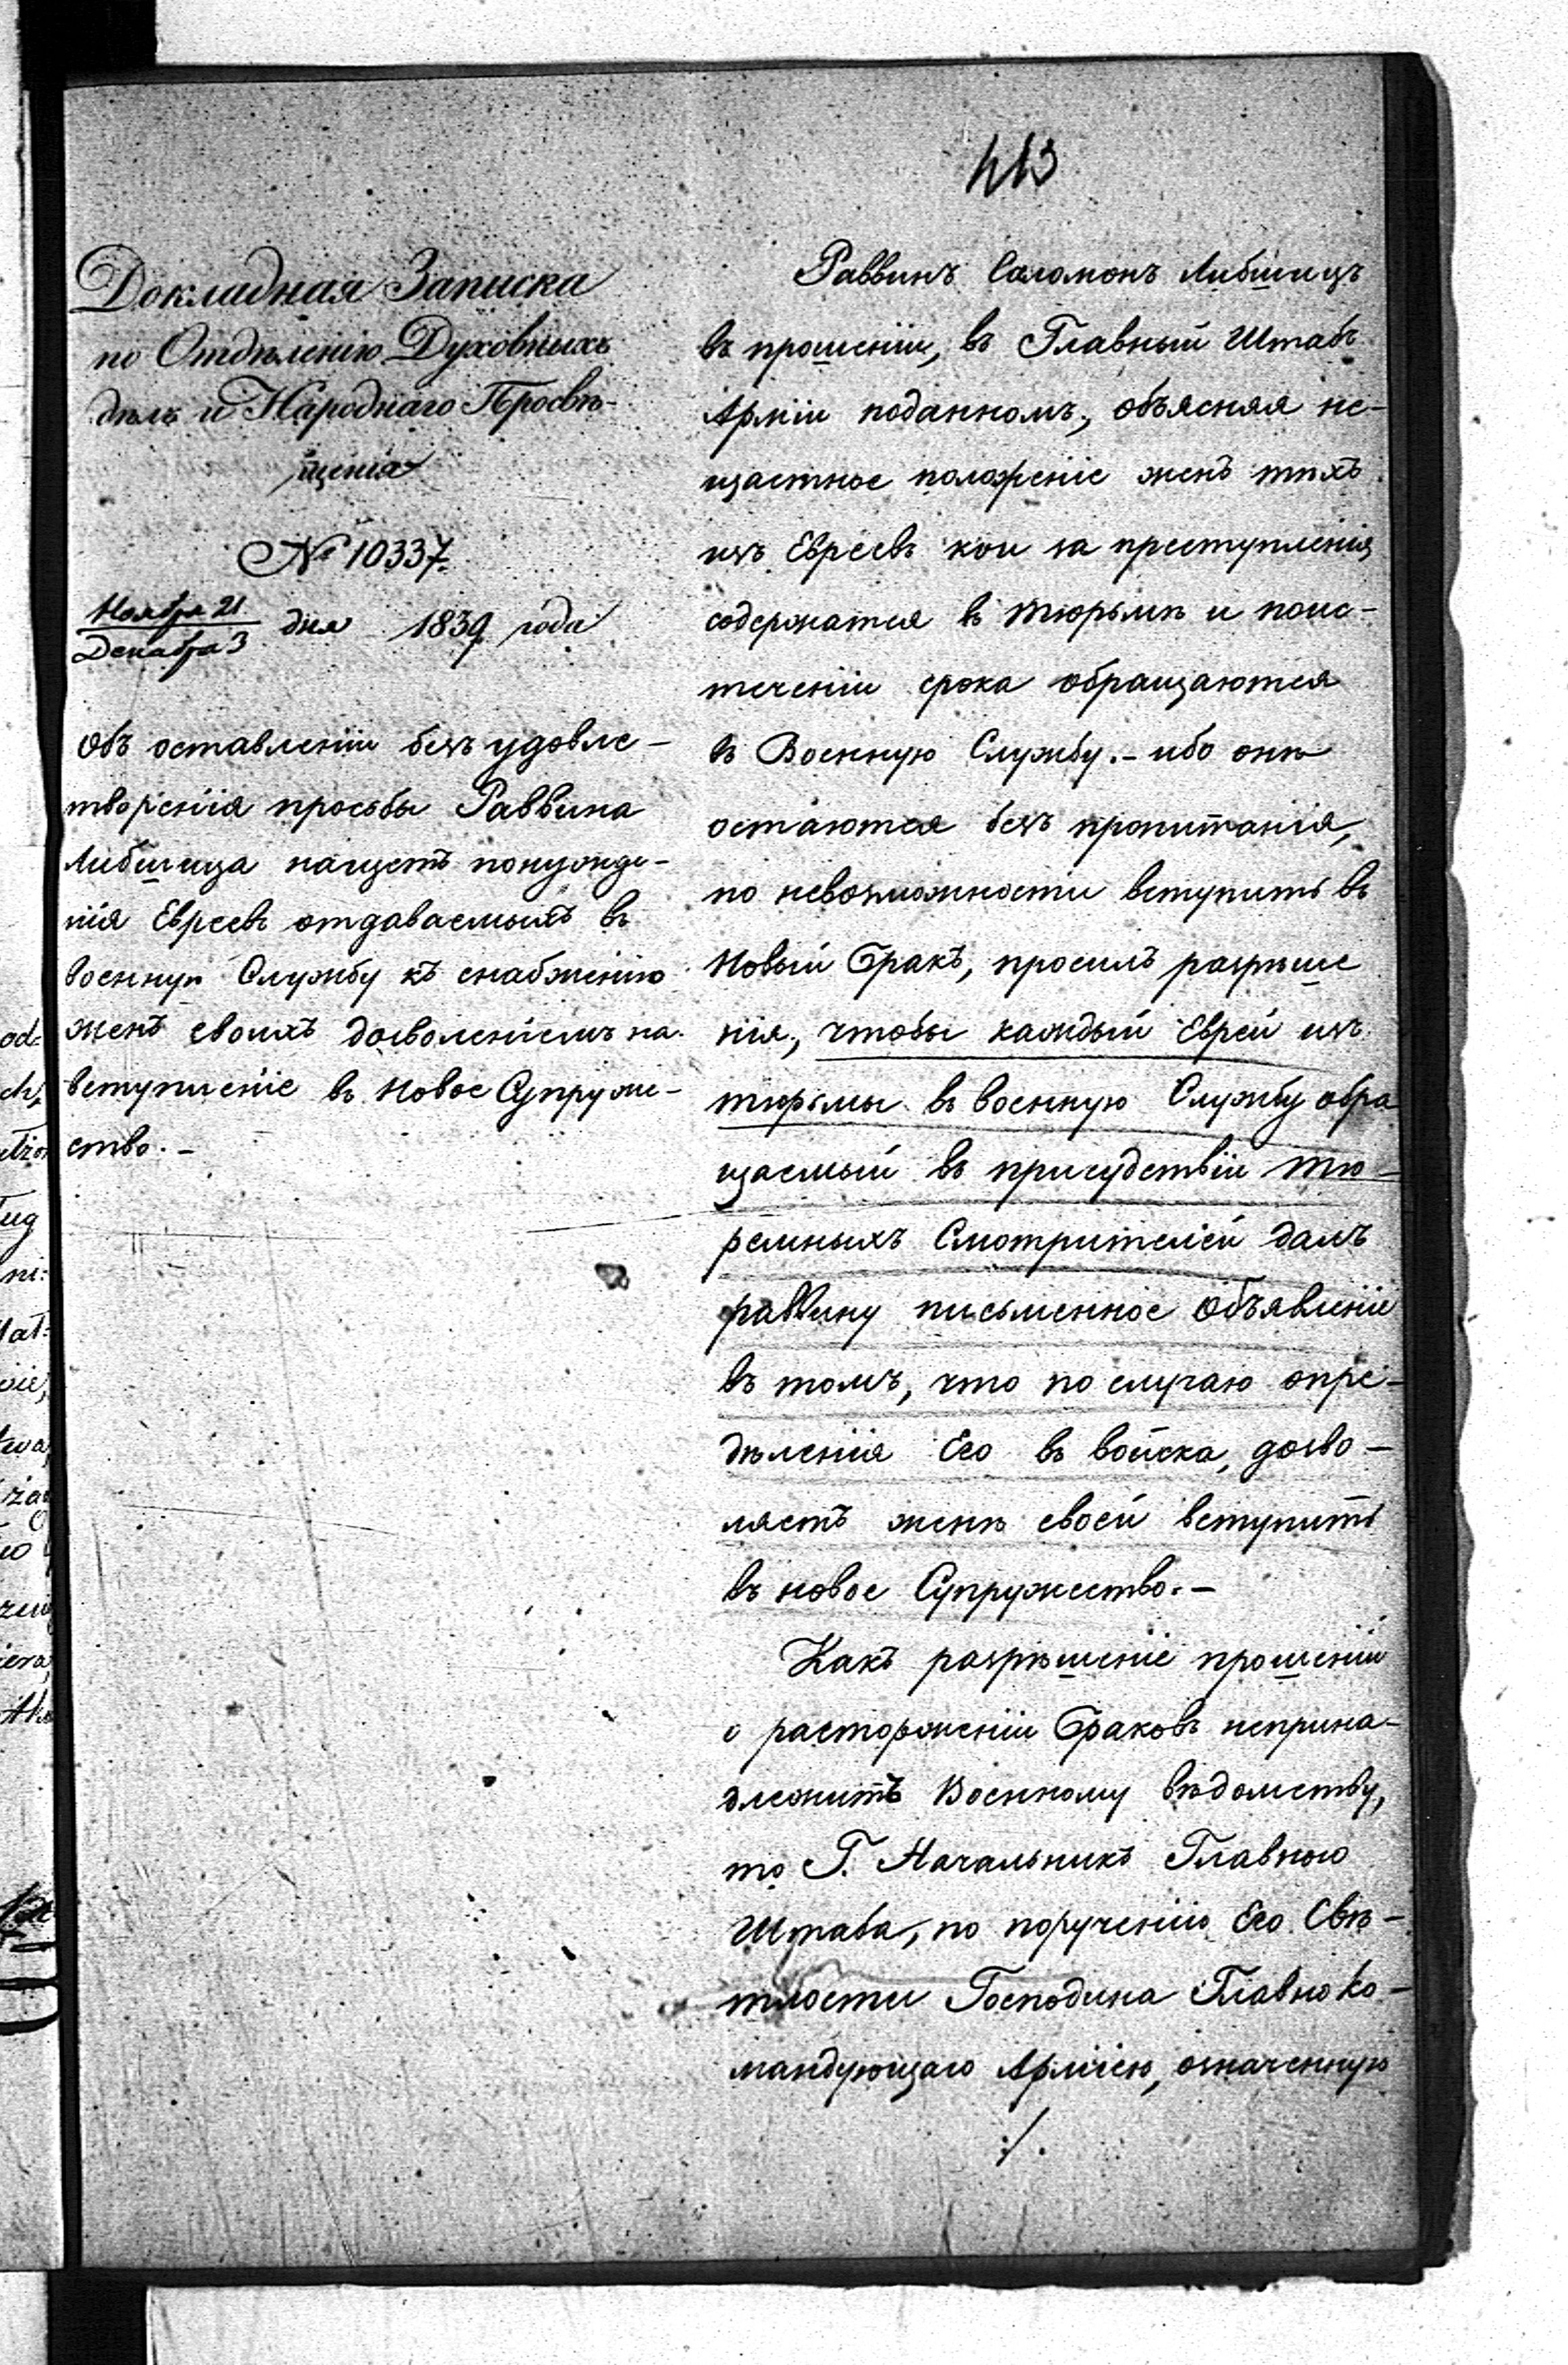 413
Докладная Записка
по Отдѣленію Духовныхъ
дѣлъ и Народнаго Просвѣ-
щенія
№ 10337.
Ноября 21
Декабря 3 дня 1839 года
Объ оставленіи безъ удовле-
творенія просьбы Раввина
Либшица насчетъ понужде-
нія Евреевъ отдаваемыхъ въ
военную Службу къ снабженію
женъ своихъ дозволеніемъ на
вступленіе въ новое Супруже-
ство. –
Раввинъ Саломонъ Либшицъ
въ прошеніи, въ Главный Штабъ
Арміи поданномъ, объясняя не-
щастное положеніе женъ тѣхъ
изъ Евреевъ кои за преступленія
содержатся въ тюрьмѣ и поис-
теченіи срока обращаются
въ Военную Службу. – ибо онѣ
остаются безъ пропитанія,
по невозможности вступить въ
новый бракъ, просилъ разрѣше
нія, чтобы каждый Еврей изъ
тюрьмы въ военную Службу обра
щаемый въ присудствіи тю-
ремныхъ Смотрителей далъ
раввину письменное объявленіе
въ томъ, что по случаю опре-
дѣленія Его въ войска, дозво-
ляетъ женѣ своей вступить
въ новое Супружество. –
Какъ разрѣшеніе прошеній
о расторженіи браковъ неприна-
длежитъ Военному вѣдомству,
то Г. Начальникъ Главного
Штаба, по порученію Его Свѣ-
тлости Господина Главноко-
мандующаго Арміею, означенную
:/.